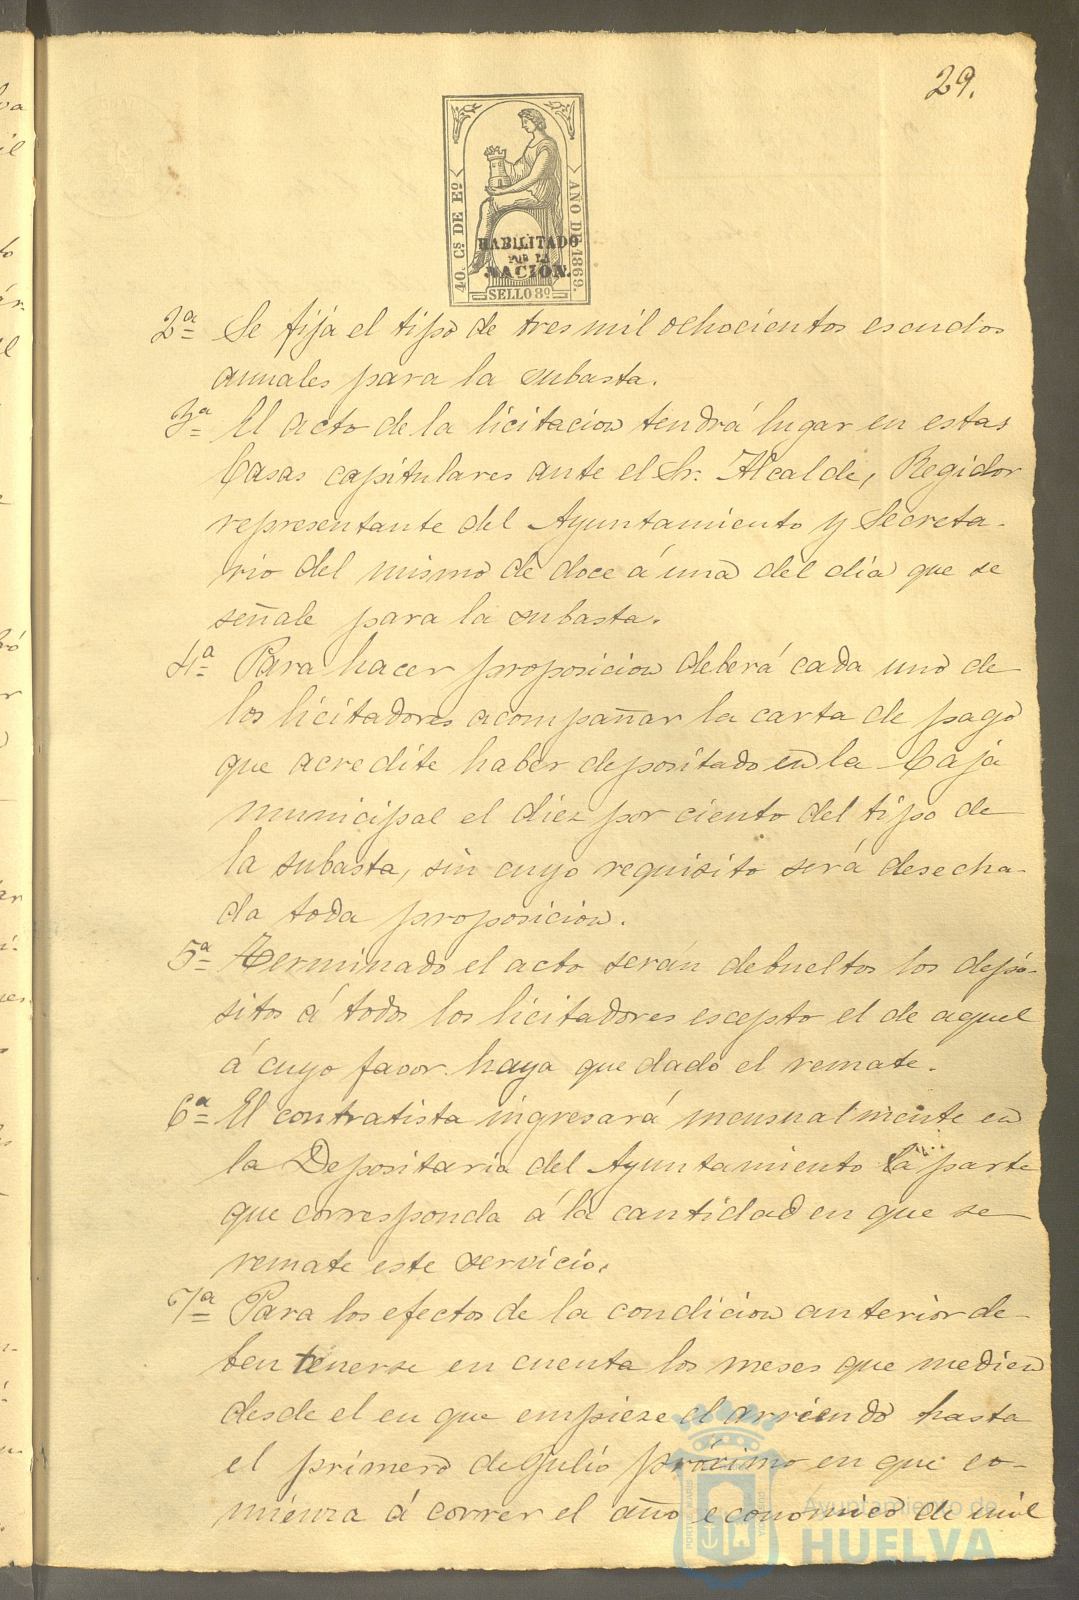 29.
40. Cs. DE Eo.
AÑO DE 1869.
HABILITADO
POR LA
NACION.
SELLO 8º
2ª Se fija el tipo de tres mil ochocientos escudos
anuales para la subasta.
3ª El acto de la licitacion tendrá lugar en estas
Casas capitulares ante el Sr. Alcalde, Regidor
representante del Ayuntamiento y Secreta-
rio del mismo de doce á una del dia que se
señale para la subasta.
4ª Para hacer proposicion deberá cada uno de
los licitadores acompañar la carta de pago
que acredite haber depositado en la Caja
municipal el diez por ciento del tipo de
la subasta, sin cuyo requisito será desecha-
da toda proposicion.
5ª Terminado el acto serán debueltos los depó-
sitos á todos los licitadores escepto el de aquel
á cuyo favor haya quedado el remate.
6ª El contratista ingresará mensualmente en
la Depositaria del Ayuntamiento la parte
que corresponda á la cantidad en que se
remate este servicio.
7ª Para los efectos de la condicion anterior de-
ben tenerse en cuenta los meses que medien
desde el en que empieze el arriendo hasta
el primero de Julio próximo en que co-
mienza á correr el año economico de mil
Ayuntamiento de
HUELVA